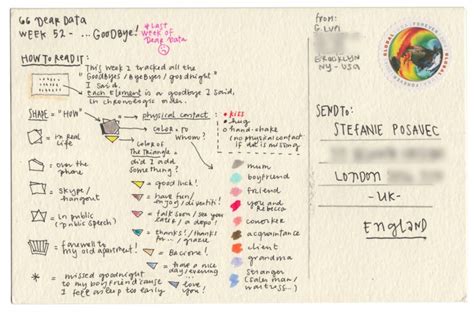 GG Dear Data
WEEK 52 - ... GOODBYE!
*Last
week of
Dear Data
HOW TO READ IT:
This week I tracked all the
"Goodbyes / byebyes / goodnight"
I said.
each element is a goodbye I said,
in chronologic order.
SHAPE = "HOW"
in real
life
over the
phone
skype /
hangout
in public
(public speech)
farewell to
my old apartment!
* = missed goodnight
to my boyfriend cause
I fell asleep too early
physical contact
color = to
whom?
color of
the triangle =
did I add
something?
= good luck!
= have fun /
enjoy / divertiti!
= talk soon / see you
later / a dopo!
= thanks! / thanks
for... / grazie
= Bacione!
= have a nice
day / evening
= love
you!
• = kiss
• = hug
o = hand-shake
(no physical contact
if dot is missing)
mum
boyfriend
friend
you and
Rebecca
coworker
acquaintance
client
grandma
stranger
(sales man /
waitress...)
from:
G. LUPI
BROOKLYN
NY - USA
GLOBAL
FOREVER
SEND TO:
STEFANIE POSAVEC
LONDON
- UK -
ENGLAND